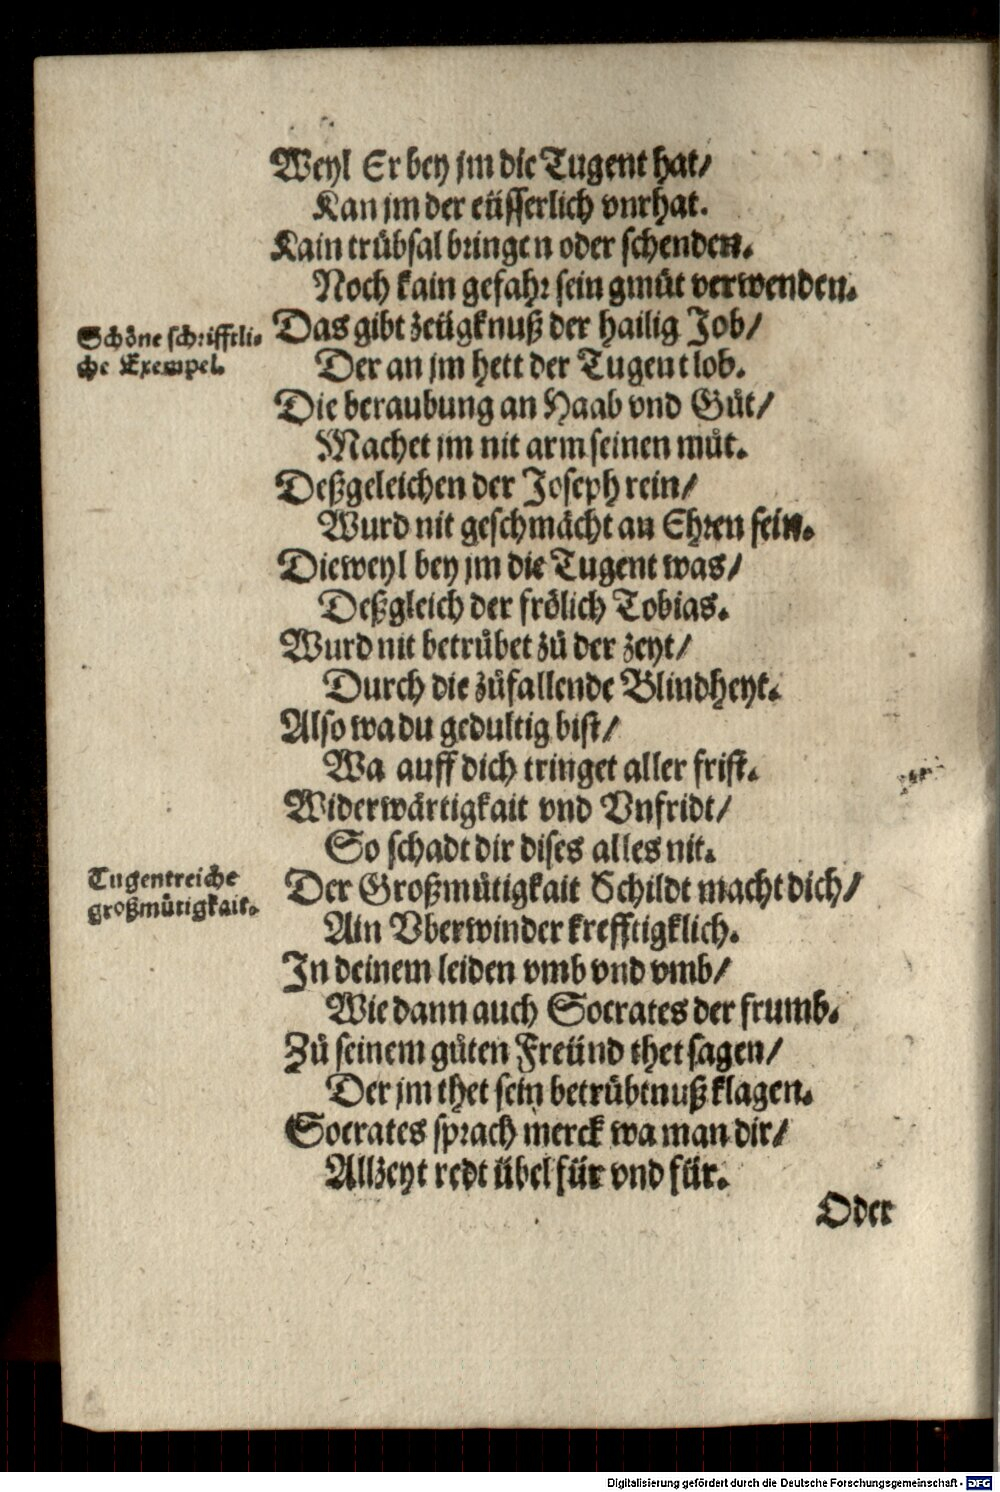 Weyl Er bey jm die Tugent hat/
Kan jm der eüsserlich vnrhat.
Kain trübsal bringen oder schenden.
Noch kain gefahr sein gmüt verwenden.
Schöne schrifftli-
che Exempel.
Das gibt zeügknuß der hailig Job/
Der an jm hett der Tugent lob.
Die beraubung an Haab vnd Gůt/
Machet jm nit arm seinen můt.
Deßgeleichen der Joseph rein/
Wurd nit geschmächt an Ehren sein.
Dieweyl bey jm die Tugent was/
Deßgleich der frölich Tobias.
Wurd nit betrübet zů der zeyt/
Durch die zůfallende Blindheyt.
Also wa du gedultig bist/
Wa auff dich tringet aller frist.
Widerwärtigkait vnd Vnfridt/
So schadt dir dises alles nit.
Tugentreiche
großmütigkait.
Der Großmütigkait Schildt macht dich/
Ain Vberwinder krefftigklich.
In deinem leiden vmb vnd vmb/
Wie dann auch Socrates der frumb.
Zů seinem gůten Freünd thet sagen/
Der jm thet sein betrübtnuß klagen.
Socrates sprach merck wa man dir/
Allzeyt redt übel für vnd für.
Oder
Digitalisierung gefördert durch die Deutsche Forschungsgemeinschaft - DFG